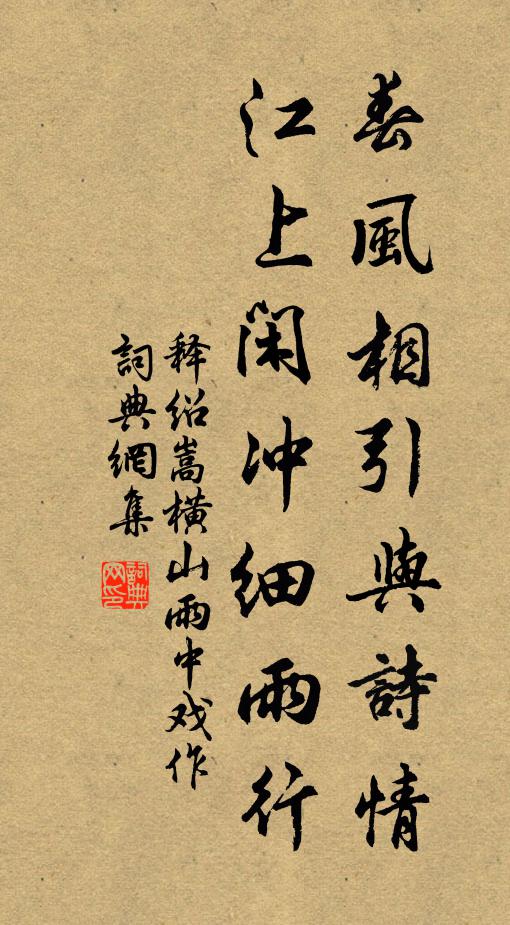 春風相引與詩情
江上閑冲细雨行
释绍嵩横山雨中戏作
詞典網集
詞典
网印